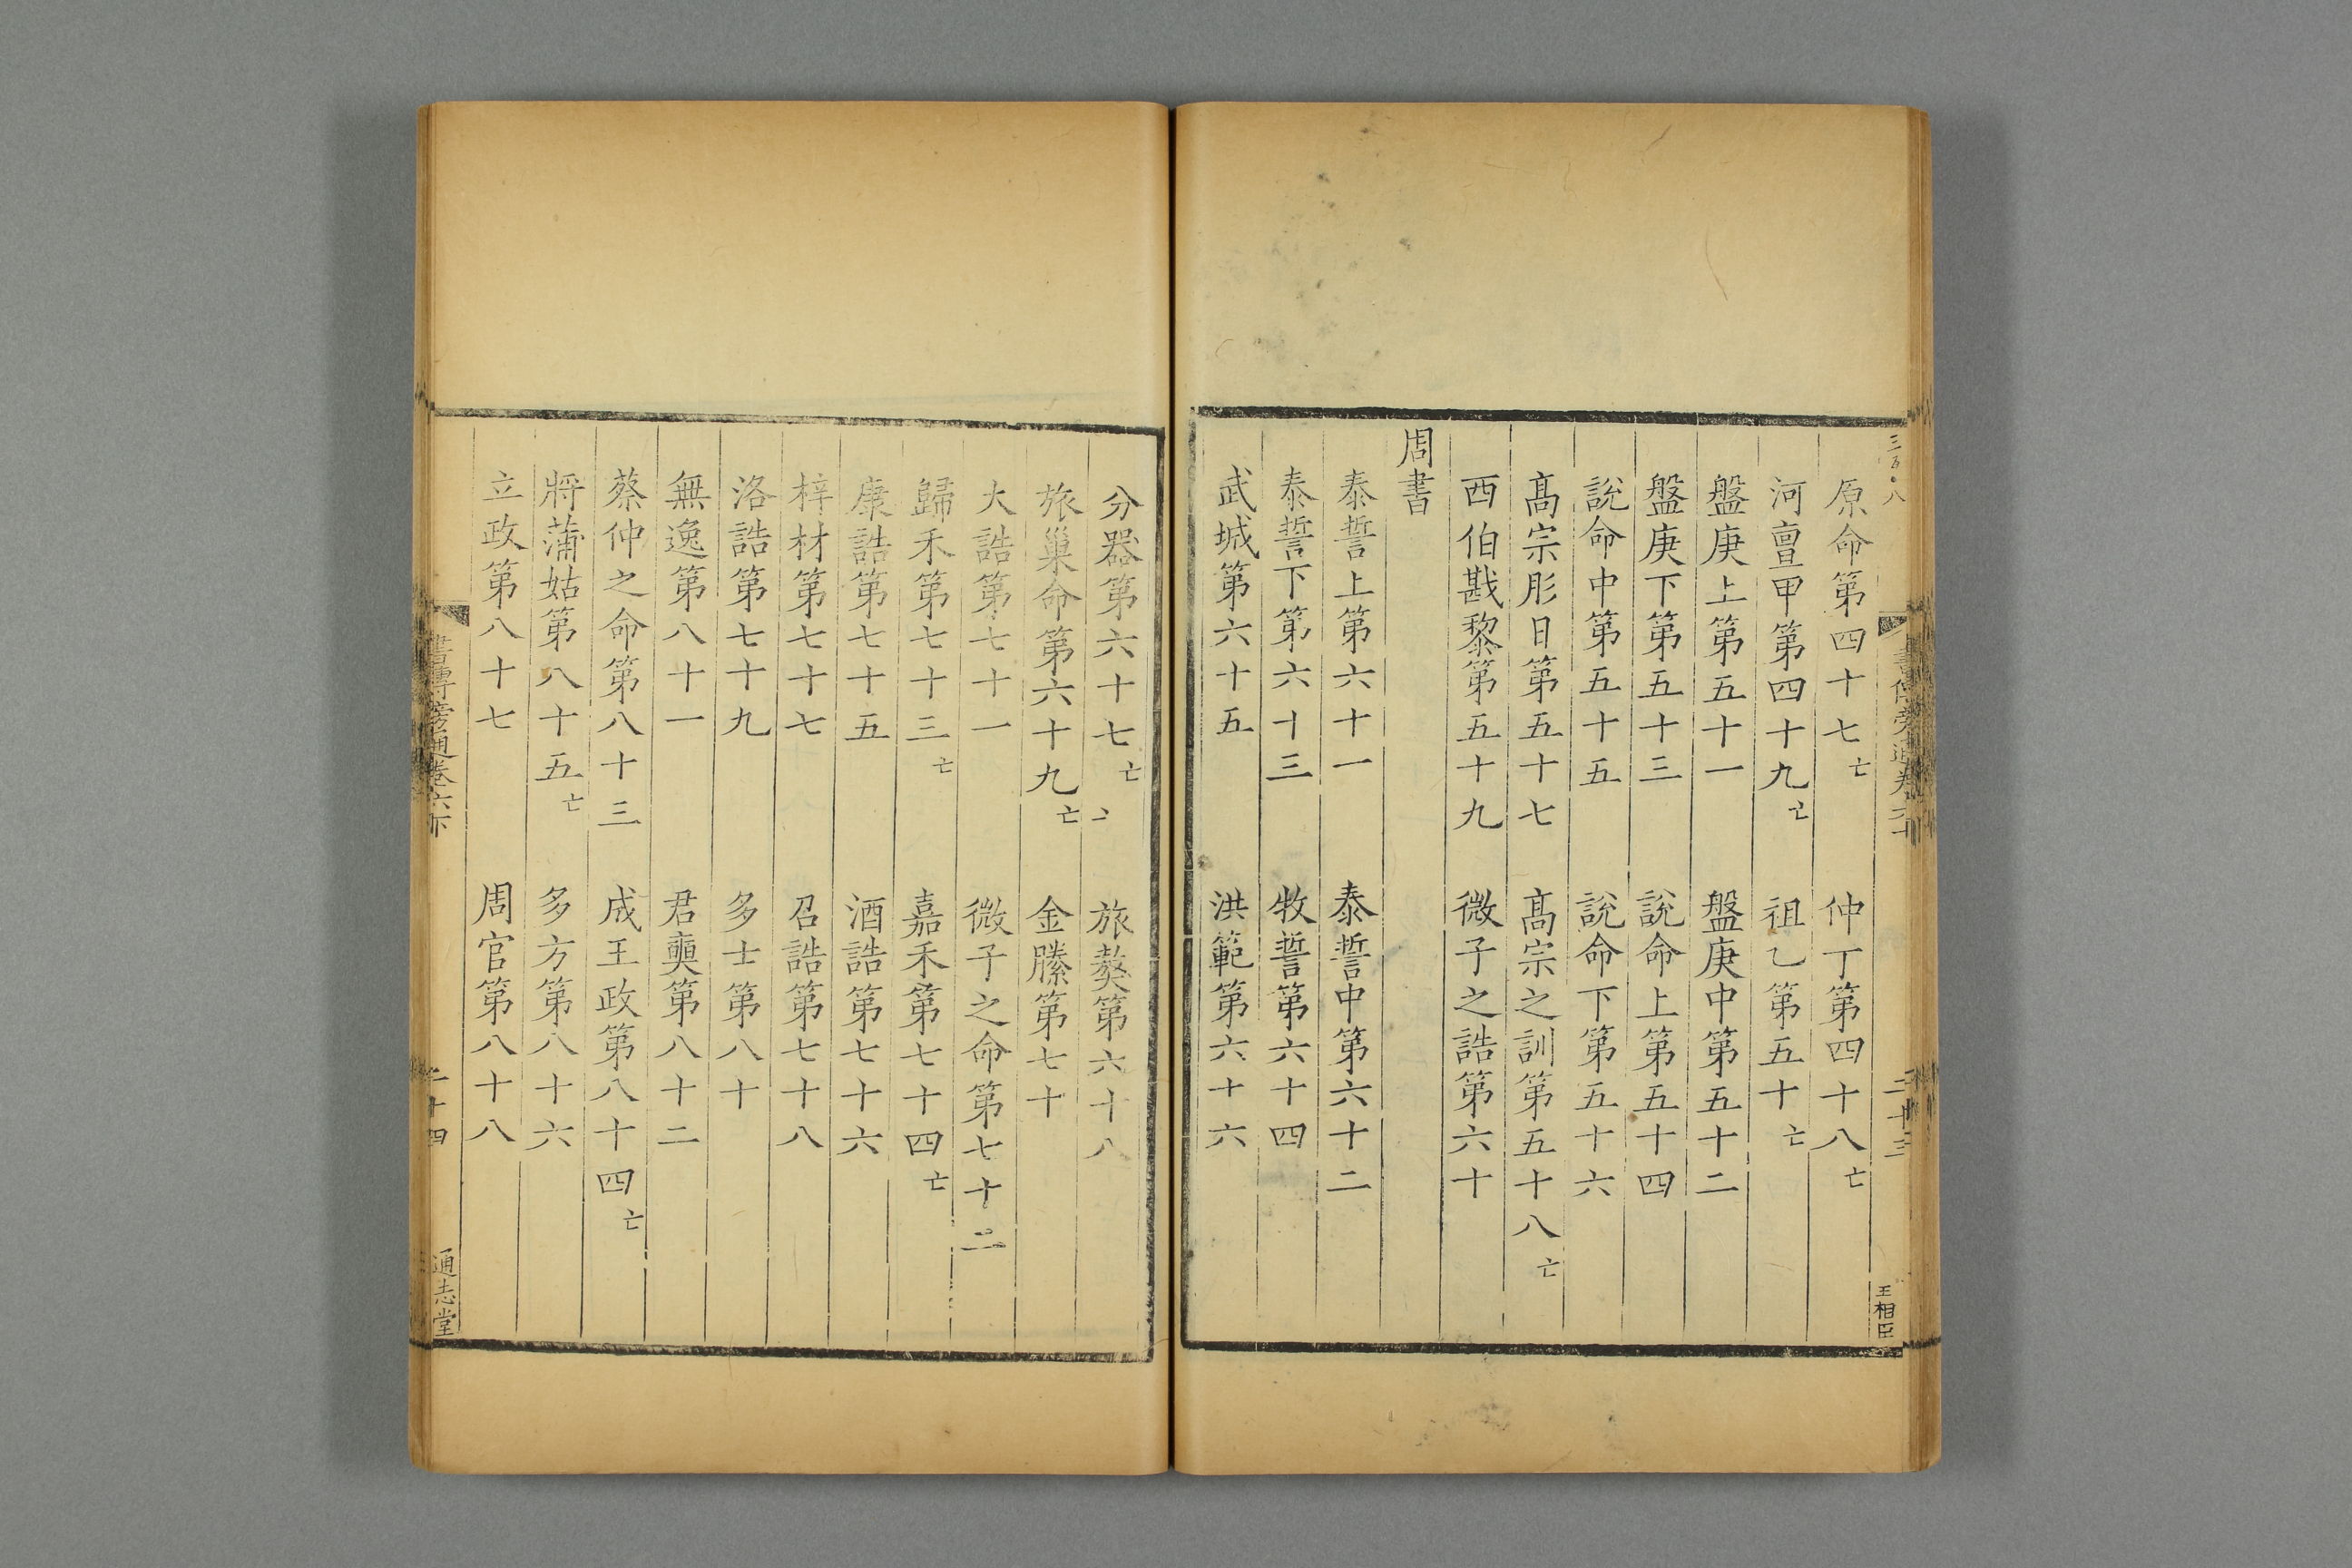 原命第四十七亡　仲丁第四十八亡
河亶甲第四十九亡　祖乙第五十亡
盤庚上第五十一　盤庚中第五十二
盤庚下第五十三　說命上第五十四
說命中第五十五　說命下第五十六
髙宗肜日第五十七　髙宗之訓第五十八亡
西伯戡黎第五十九　微子之誥第六十
周書
泰誓上第六十一　泰誓中第六十二
泰誓下第六十三　牧誓第六十四
武城第六十五　洪範第六十六
王相臣
分器第六十七亡　旅獒第六十八
旅巢命第六十九亡　金縢第七十
大誥第七十一　微子之命第七十二
歸禾第七十三亡　嘉禾第七十四亡
康誥第七十五　酒誥第七十六
梓材第七十七　召誥第七十八
洛誥第七十九　多士第八十
無逸第八十一　君奭第八十二
蔡仲之命第八十三　成王政第八十四亡
將蒲姑第八十五亡　多方第八十六
立政第八十七　周官第八十八
書傳旁通卷六下　二十四　通志堂